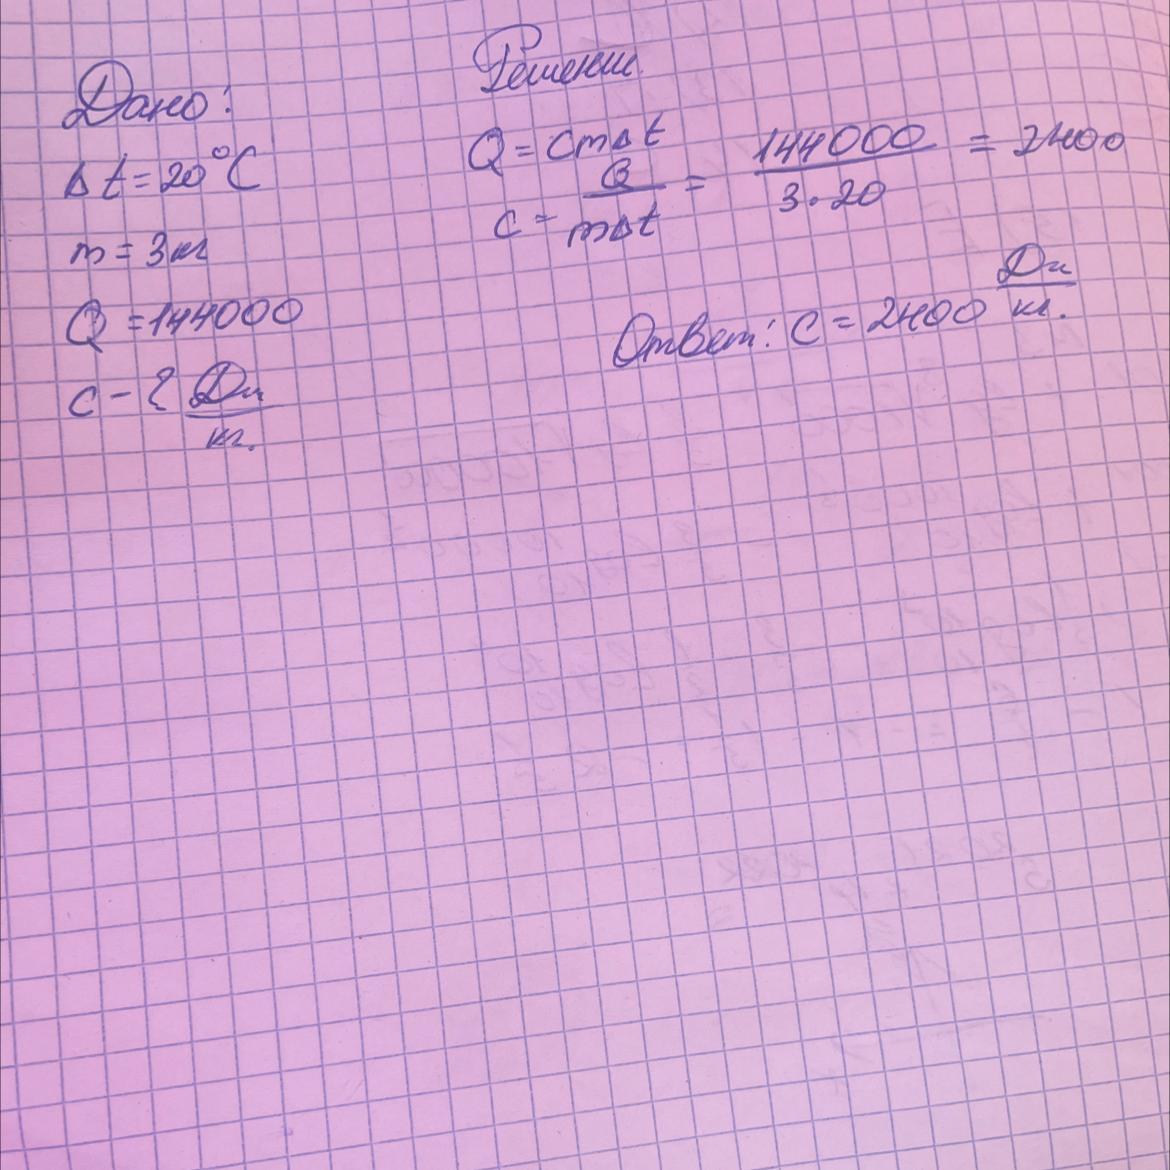 Дано:
Δt = 20°C
m = 3 кг
Q = 144000
c - ? Дж/кг.
Решение
Q = cmΔt
c = Q/mΔt = 144000/3·20 = 2400
Ответ: C = 2400 Дж/кг.